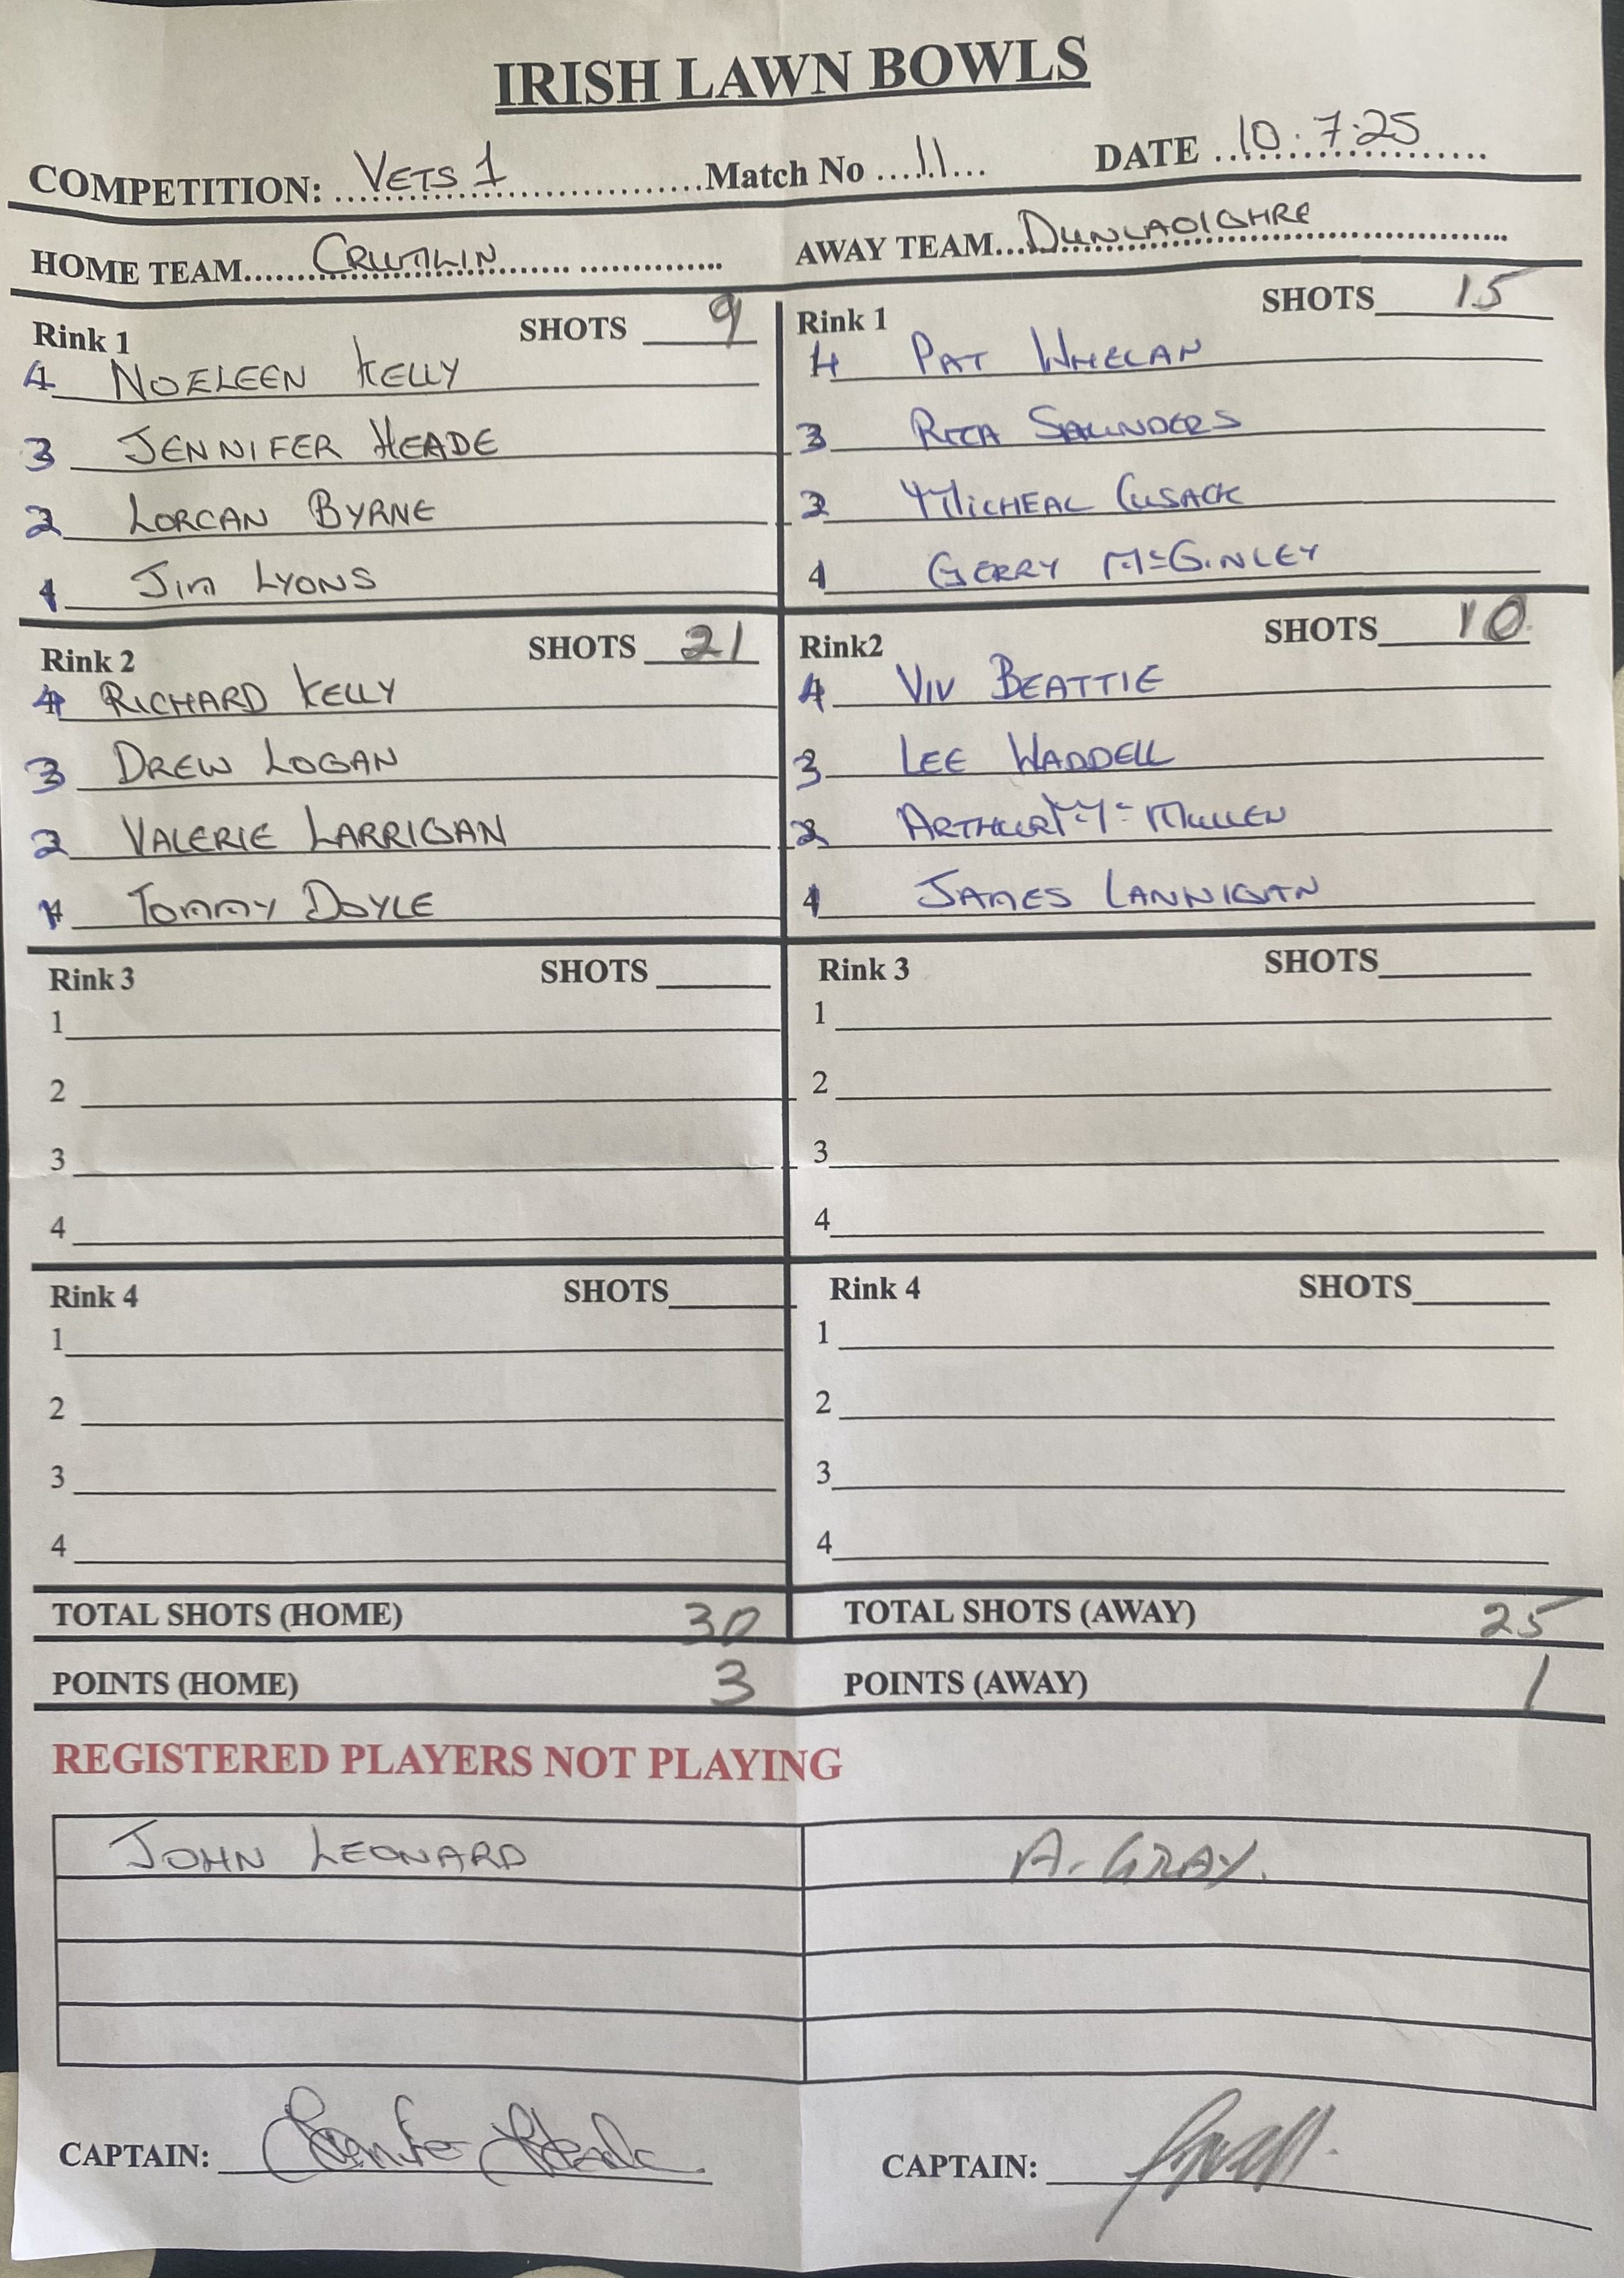 IRISH LAWN BOWLS
COMPETITION: VETS 1 Match No 11 DATE 10.7.25
HOME TEAM CRUMLIN AWAY TEAM DUNLAOIGHRE
Rink 1 SHOTS 9
4 NOELEEN KELLY
3 JENNIFER HEADE
2 LORCAN BYRNE
1 JIM LYONS
Rink 1 SHOTS 15
4 PAT WHELAN
3 RITA SAUNDERS
2 MICHEAL CUSACK
1 GERRY McGINLEY
Rink 2 SHOTS 21
4 RICHARD KELLY
3 DREW LOGAN
2 VALERIE LARRIGAN
1 TOMMY DOYLE
Rink2 SHOTS 10
4 VIV BEATTIE
3 LEE WADDELL
2 ARTHUR Mc MULLEN
1 JAMES LANNIGAN
Rink 3 SHOTS
1
2
3
4
Rink 3 SHOTS
1
2
3
4
Rink 4 SHOTS
1
2
3
4
Rink 4 SHOTS
1
2
3
4
TOTAL SHOTS (HOME) 30 TOTAL SHOTS (AWAY) 25
POINTS (HOME) 3 POINTS (AWAY) 1
REGISTERED PLAYERS NOT PLAYING
JOHN LEONARD A. GRAY.
CAPTAIN: Jennifer Heade CAPTAIN: